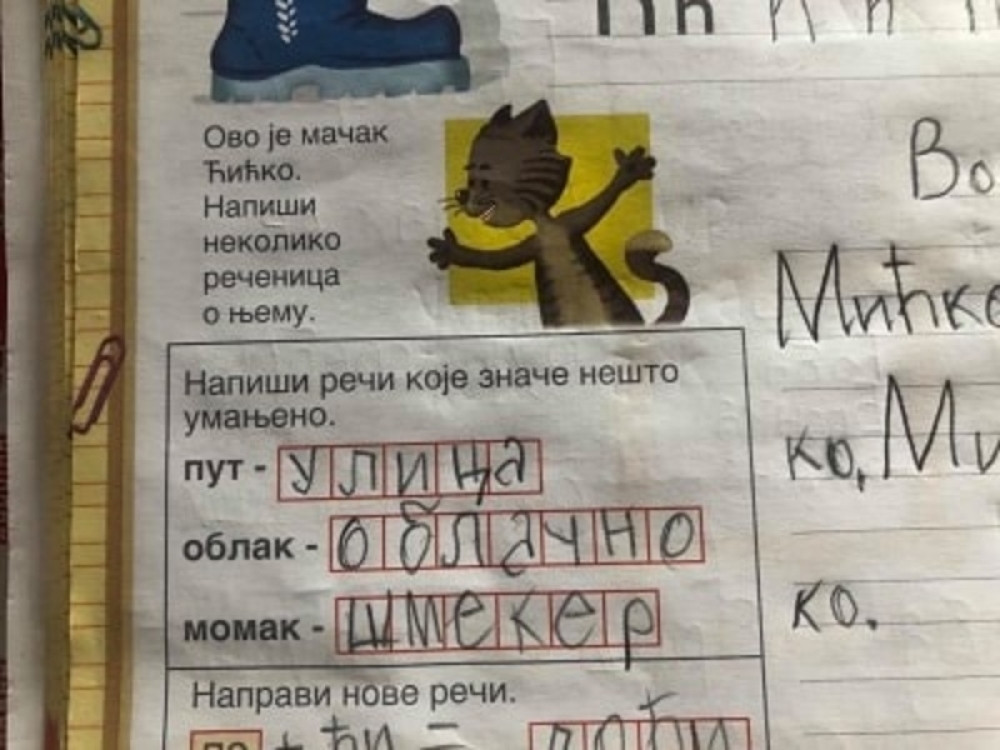 Ово је мачак
Ћићко.
Напиши
неколико
реченица
о њему.
Во
Мићке
ко, Ми
ко.
Напиши речи које значе нешто
умањено.
пут - улица
облак - облачно
момак - шмекер
Направи нове речи.
по + ћи = поћи